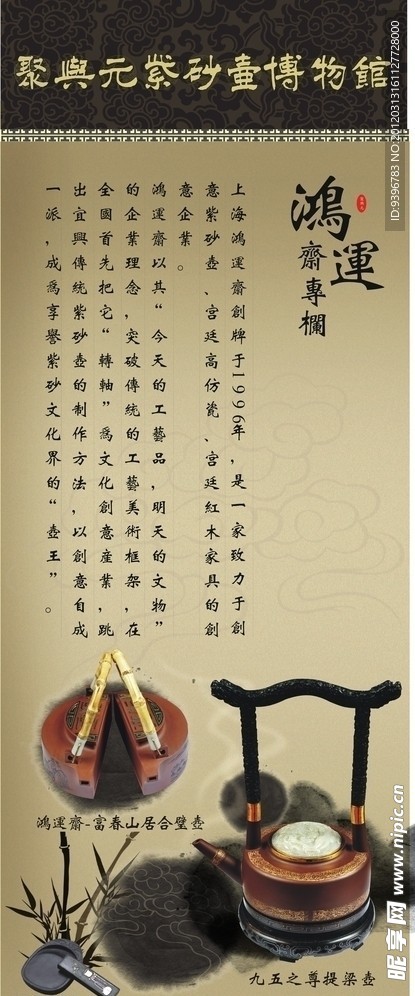 聚與元紫砂壺博物館
鴻運
齋專欄
上海鴻運齋創牌于1996年，是一家致力于創
意紫砂壺、宮廷高仿瓷、宮廷紅木家具的創
意企業。
鴻運齋以其“今天的工藝品，明天的文物”
的企業理念，突破傳統的工藝美術框架，在
全國首先把它“轉軸”爲文化創意産業，跳
出宜興傳統紫砂壺的制作方法，以創意自成
一派，成爲享譽紫砂文化界的“壺王”。
鴻運齋-富春山居合璧壺
九五之尊提梁壺
ID:9396783 NO:20120313161127728000
昵享网 www.nipic.cn